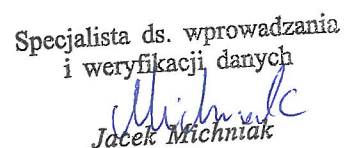 Specjalista ds. wprowadzania
i weryfikacji danych
Michniak
Jacek Michniak